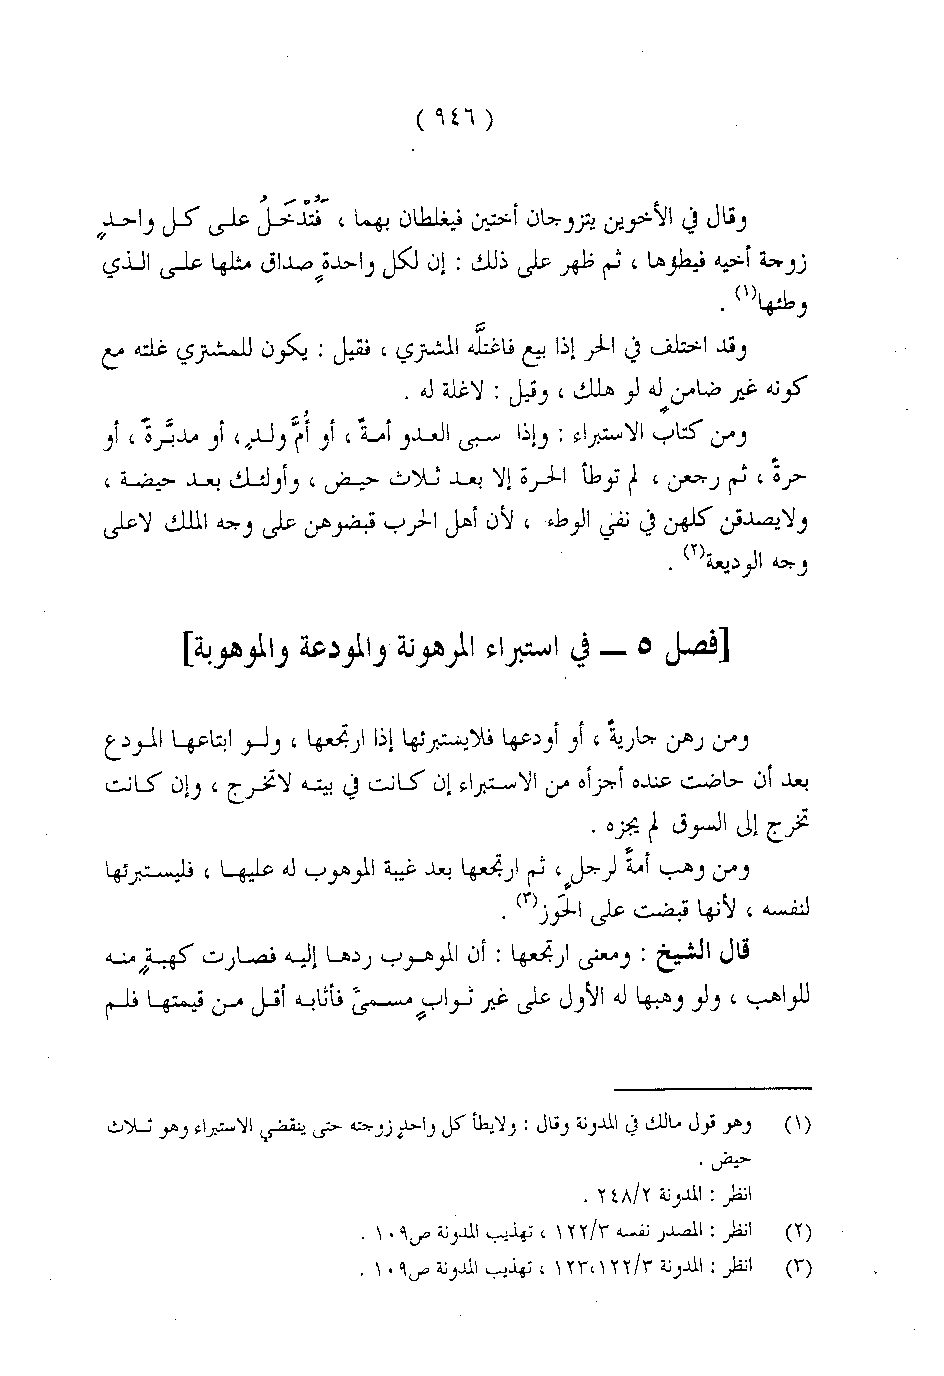 ( ٩٤٦ )
وقال في الأخوين يتزوجان أختين فيغلطان بهما ، فتُدْخَلُ على كل واحدٍ
زوجة أخيه فيطؤها ، ثم ظهر على ذلك : إن لكل واحدةٍ صداق مثلها على الذي
وطئها(١) .
وقد اختلف في الحر إذا بيع فاغتلَّه المشتري ، فقيل : يكون للمشتري غلته مع
كونه غير ضامنٍ له لو هلك ، وقيل : لاغلة له .
ومن كتاب الاستبراء : وإذا سبى العدو أمةً ، أو أُمَّ ولدٍ ، أو مدبَّرةً ، أو
حرةً ، ثم رجعن ، لم توطأ الحرة إلا بعد ثلاث حيض ، وأولئك بعد حيضة ،
ولايصدقن كلهن في نفي الوطء ، لأن أهل الحرب قبضوهن على وجه الملك لاعلى
وجه الوديعة(٢) .
[فصل ٥ ــ في استبراء المرهونة والمودعة والموهوبة]
ومن رهن جاريةً ، أو أودعها فلايستبرئها إذا ارتجعها ، ولو ابتاعها المودع
بعد أن حاضت عنده أجزأه من الاستبراء إن كانت في بيته لاتخرج ، وإن كانت
تخرج إلى السوق لم يجزه .
ومن وهب أمةً لرجلٍ ، ثم ارتجعها بعد غيبة الموهوب له عليها ، فليستبرئها
لنفسه ، لأنها قبضت على الحَوز(٣) .
قال الشيخ : ومعنى ارتجعها : أن الموهوب ردها إليه فصارت كهبةٍ منه
للواهب ، ولو وهبها له الأول على غير ثوابٍ مسمىً فأثابه أقل من قيمتها فلم
(١) وهو قول مالك في المدونة وقال : ولايطأ كل واحدٍ زوجته حتى ينقضي الاستبراء وهو ثلاث
حيض .
انظر : المدونة ٢٤٨/٢ .
(٢) انظر : المصدر نفسه ١٢٢/٣ ، تهذيب المدونة ص١٠٩ .
(٣) انظر : المدونة ١٢٣،١٢٢/٣ ، تهذيب المدونة ص١٠٩ .